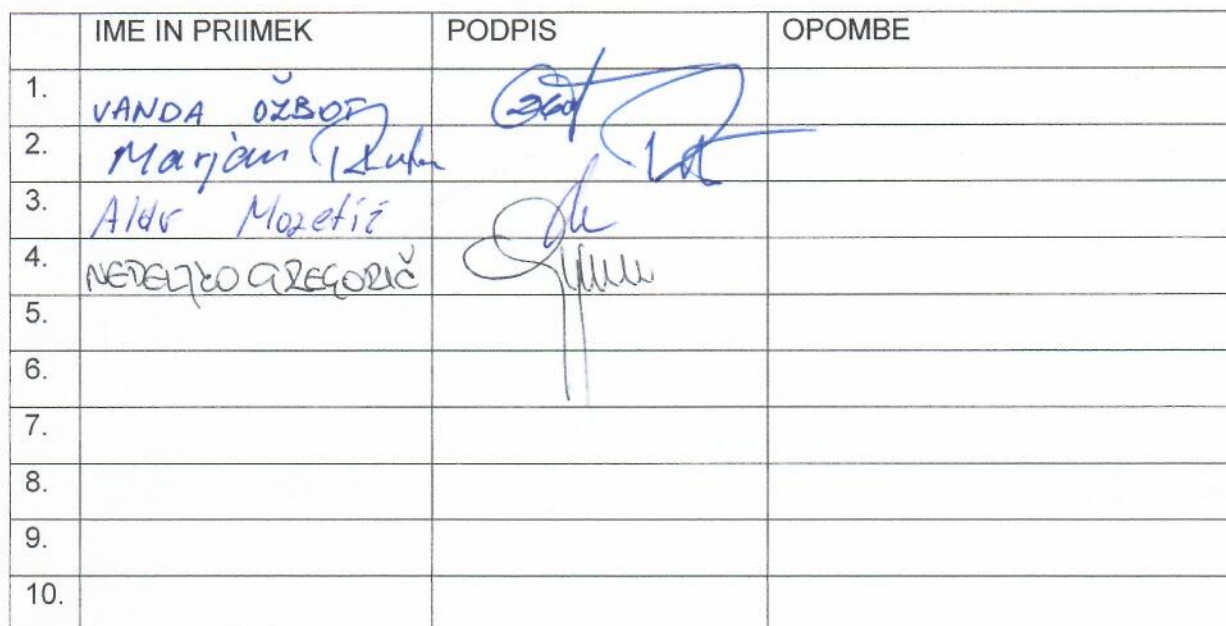 IME IN PRIIMEK PODPIS OPOMBE
1. VANDA OŽBOT
2. Marjan
3. Aldo Mozetič
4. NEDELJKO GREGORIČ
5.
6.
7.
8.
9.
10.